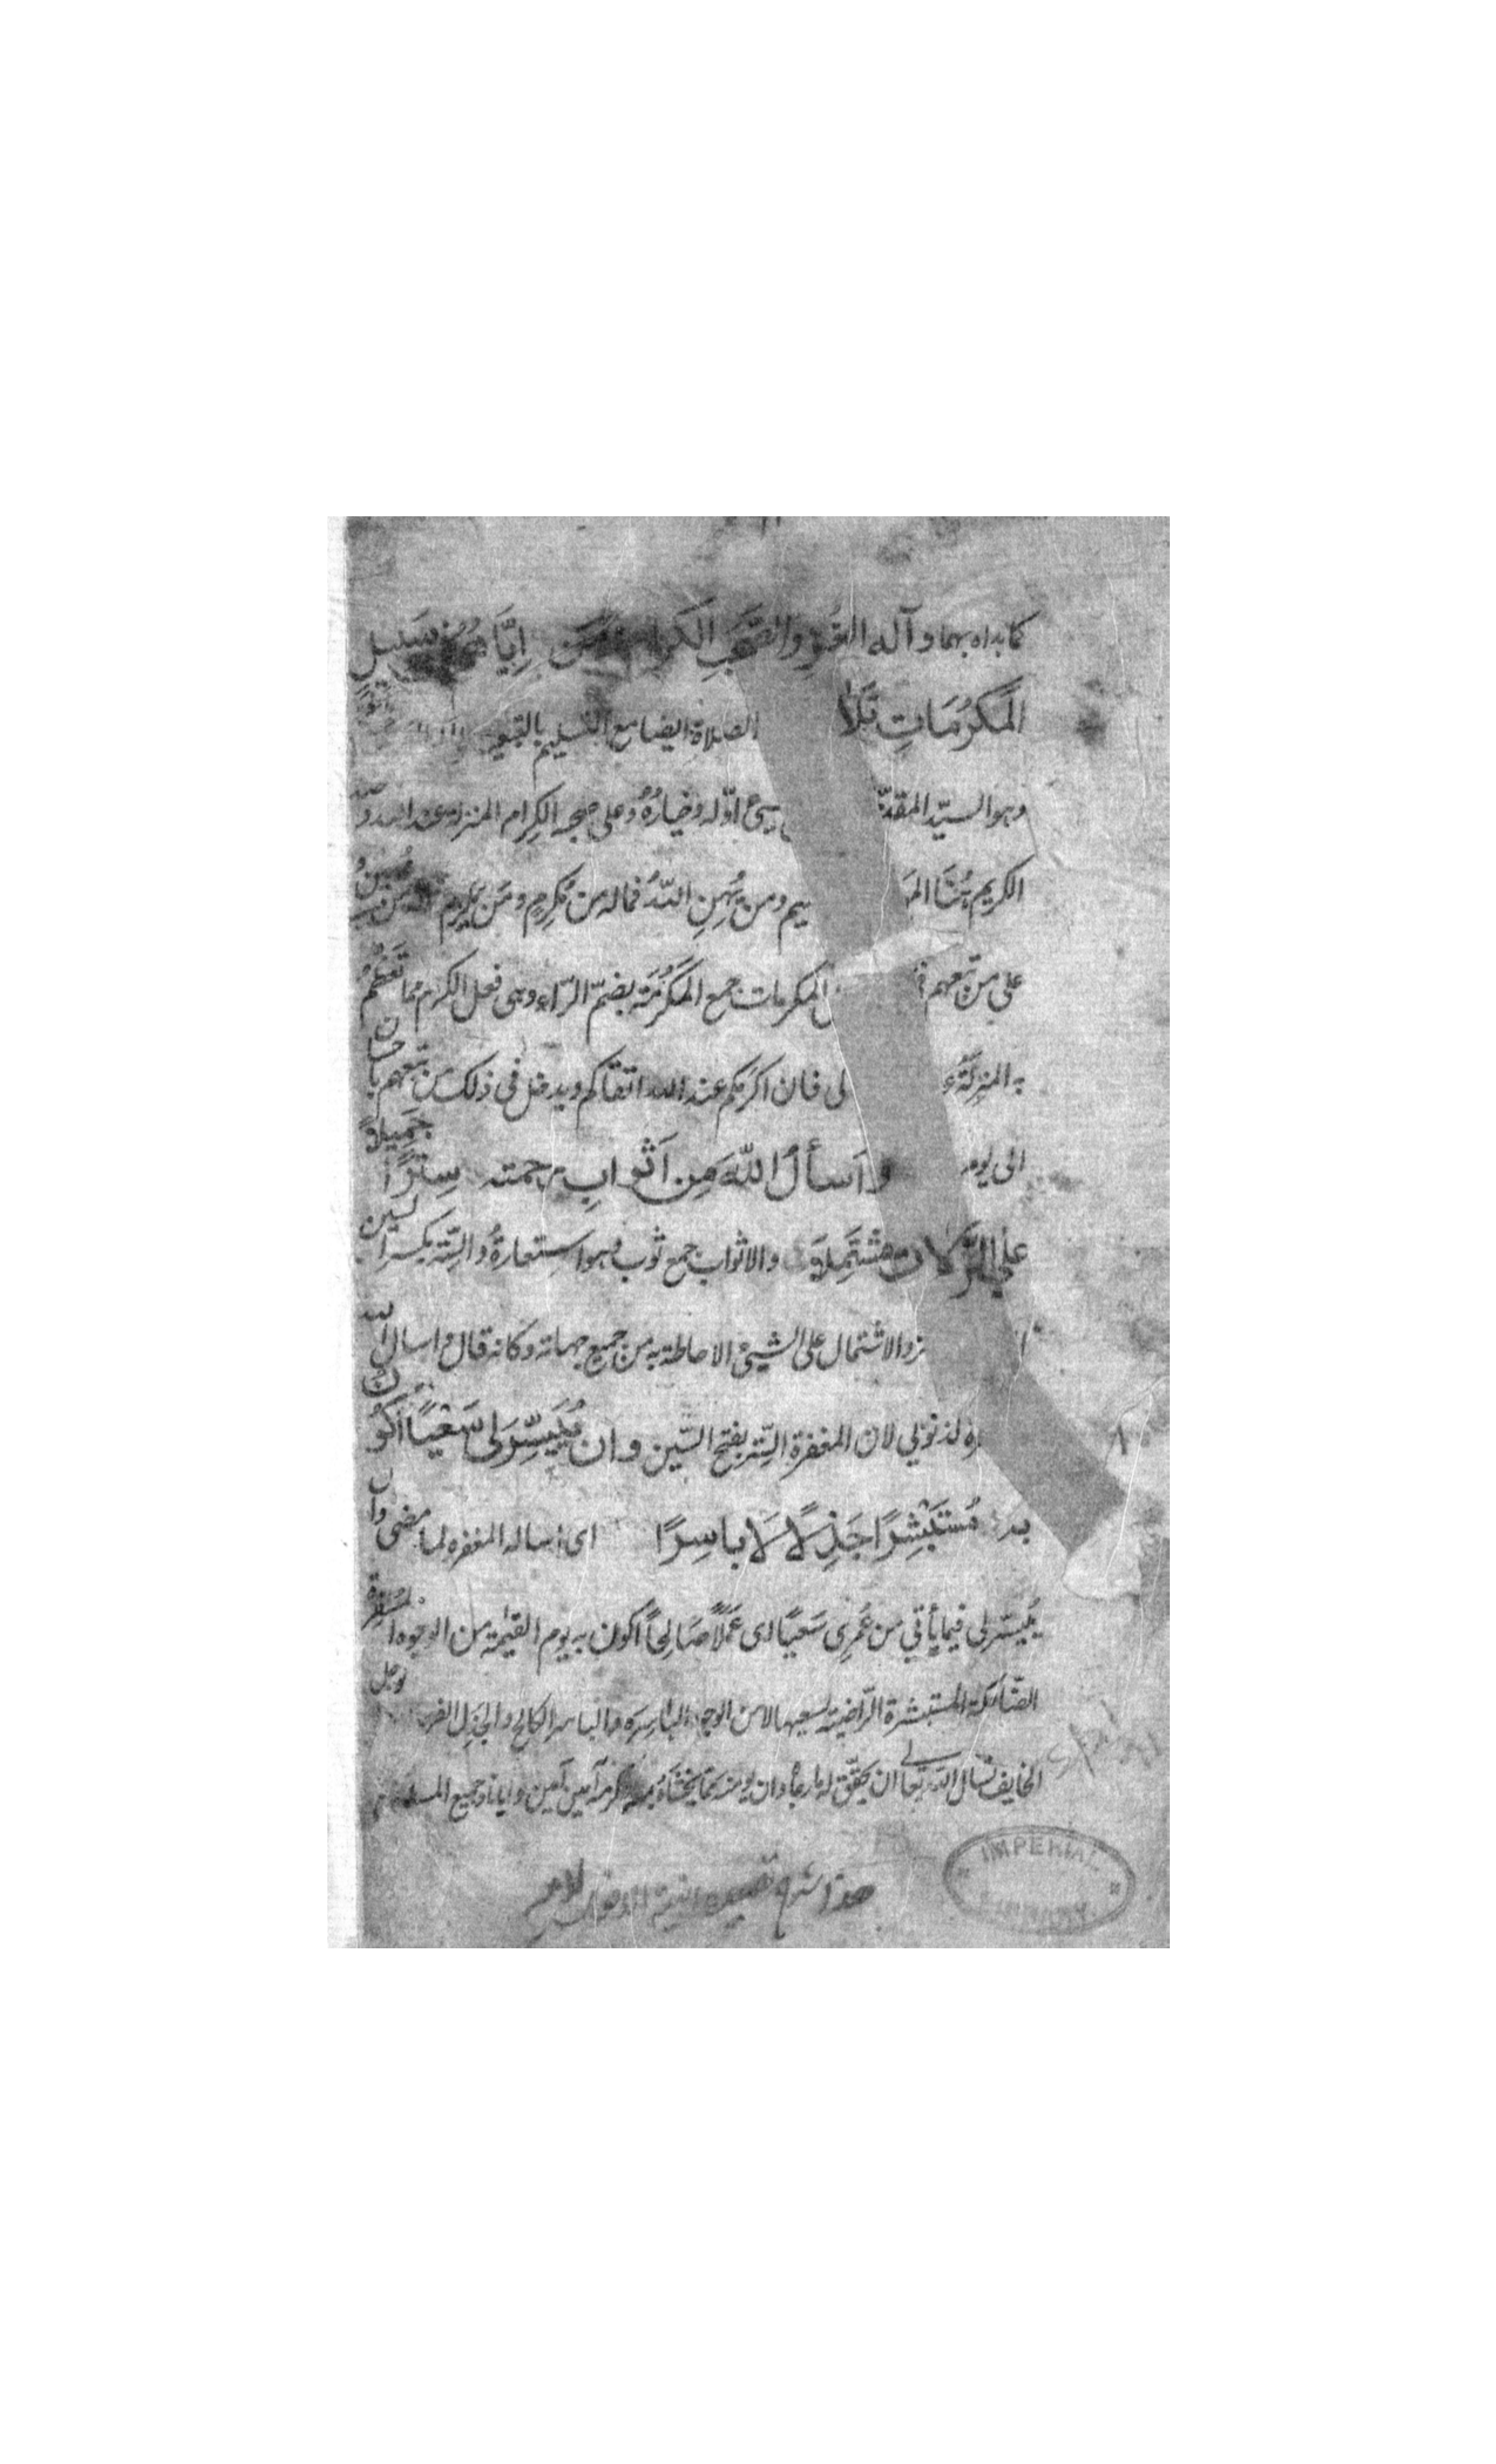 كما بداه بهما وآله الغر والصحب الكرام ومن إيّاهم في سبيل
المَكرُمَاتِ تَلَا الصلاة ايضا مع التسليم بالتبعية
وهو السيّد المقدّ سئ اوّله وخيارُهُ وعلى صحبه الكِرام المنزلة عند الله و
الكريم هُنَا ومن يُهِنِ اللّهُ فماله من مُكرِمٍ ومَن يكرِم فماله من مُهين و
على من تبعهم المكرمات جمع المَكرُمَة بضمّ الرّاء وهى فعل الكرم مما تعظمُ
به المنزلَةُ لى فان اكرَمكم عند الله اتقاكم ويدخل فى ذلك من تبعهم باحسان
الى يوم وَاَسألُ اللّهَ مِن اَثوابِ رحمته سِترًا جَمِيلاً
عَلَى الزَّلاتِ مُشتَمِلَا والاثواب جمع ثوب وهو استعارةُ والسِّتر بكسر السين
والاشتمال على الشيئ الاحاطة به من جميع جهاته وكانه قال واسال الله
لذنوبي لان المغفرة السَّتر بفتح السّين وان يُيَسِّرَ لى سَعْيًا أكُونُ
به مُستَبْشِرًا جَذِلًا لَا باسِرًا اى اساله المغفره لما مضى وان
يُيسّر لى فيما يأتي من عُمرِى سَعيًا اى عَمَلًا صَالِحًا أكون به يوم القيمة من الوجوه المُسفِرة
الضّاحكة المستبشرة الرّاضية لسعيها لا من الوجوه الباسِرَة والباسر الكالح والجَذِل الفرح وجل
الخايف نسال اللّه تعالى ان يحقّق له ما رجاه وان يومنه مما يخشاه بمنه وكرمه آمين آمين وايانا وجميع المسلمين
هذا شرح قصيدة
IMPERIAL
LIBRARY